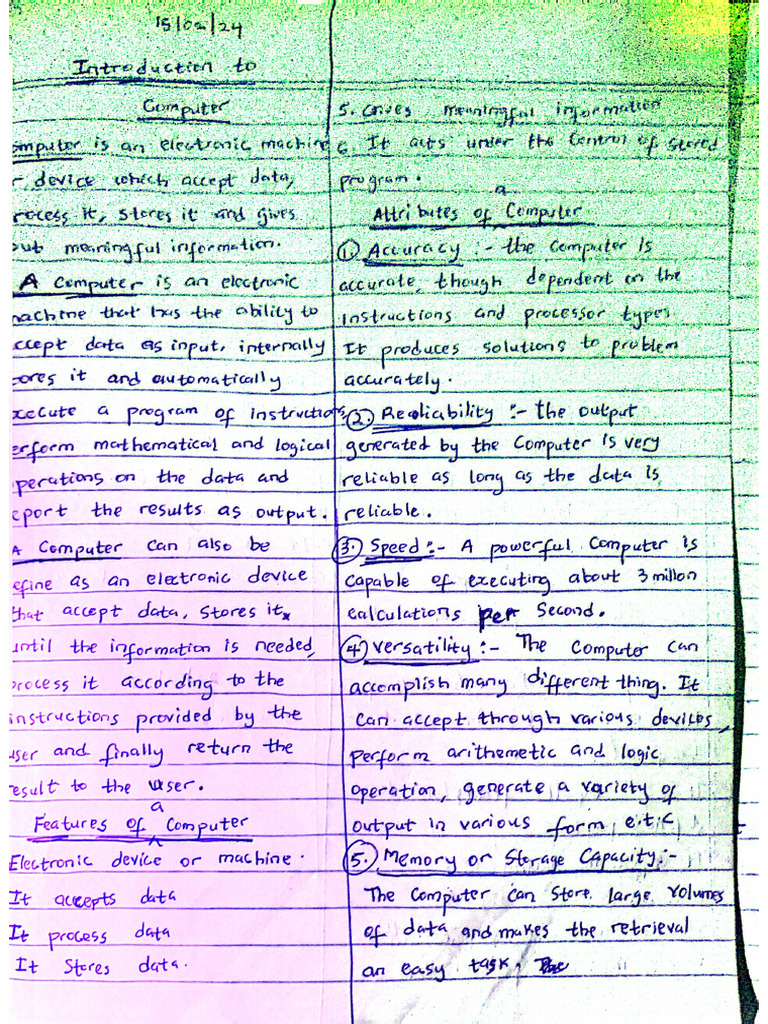 15/02/24
Introduction to
Computer
omputer is an electronic machine
r device which accept data,
rocess it, stores it and gives
out meaningful information.
A Computer is an electronic
machine that has the ability to
ccept data as input, internally
tores it and automatically
xecute a program of instructions
erform mathematical and logical
perations on the data and
eport the results as output.
A Computer can also be
efine as an electronic device
that accept data, stores it
until the information is needed,
rocess it according to the
instructions provided by the
user and finally return the
esult to the user.
Features of a Computer
Electronic device or machine.
It accepts data
It process data
It Stores data.
5. Gives meaningful information
6. It acts under the Control of stored
program.
Attributes of a Computer
1 Accuracy :- the Computer is
accurate, though dependent on the
instructions and processor types
It produces solutions to problem
accurately.
2. Realiability :- the output
generated by the Computer is very
reliable as long as the data is
reliable.
3. Speed :- A powerful Computer is
capable of executing about 3 millon
calculations per Second.
4 Versatility :- The Computer can
accomplish many different thing. It
can accept through various devices,
perform arithemetic and logic
operation, generate a variety of
output in various form e.t.c
5. Memory or Storage Capacity :-
The Computer can store large volumes
of data and makes the retrieval
an easy task,